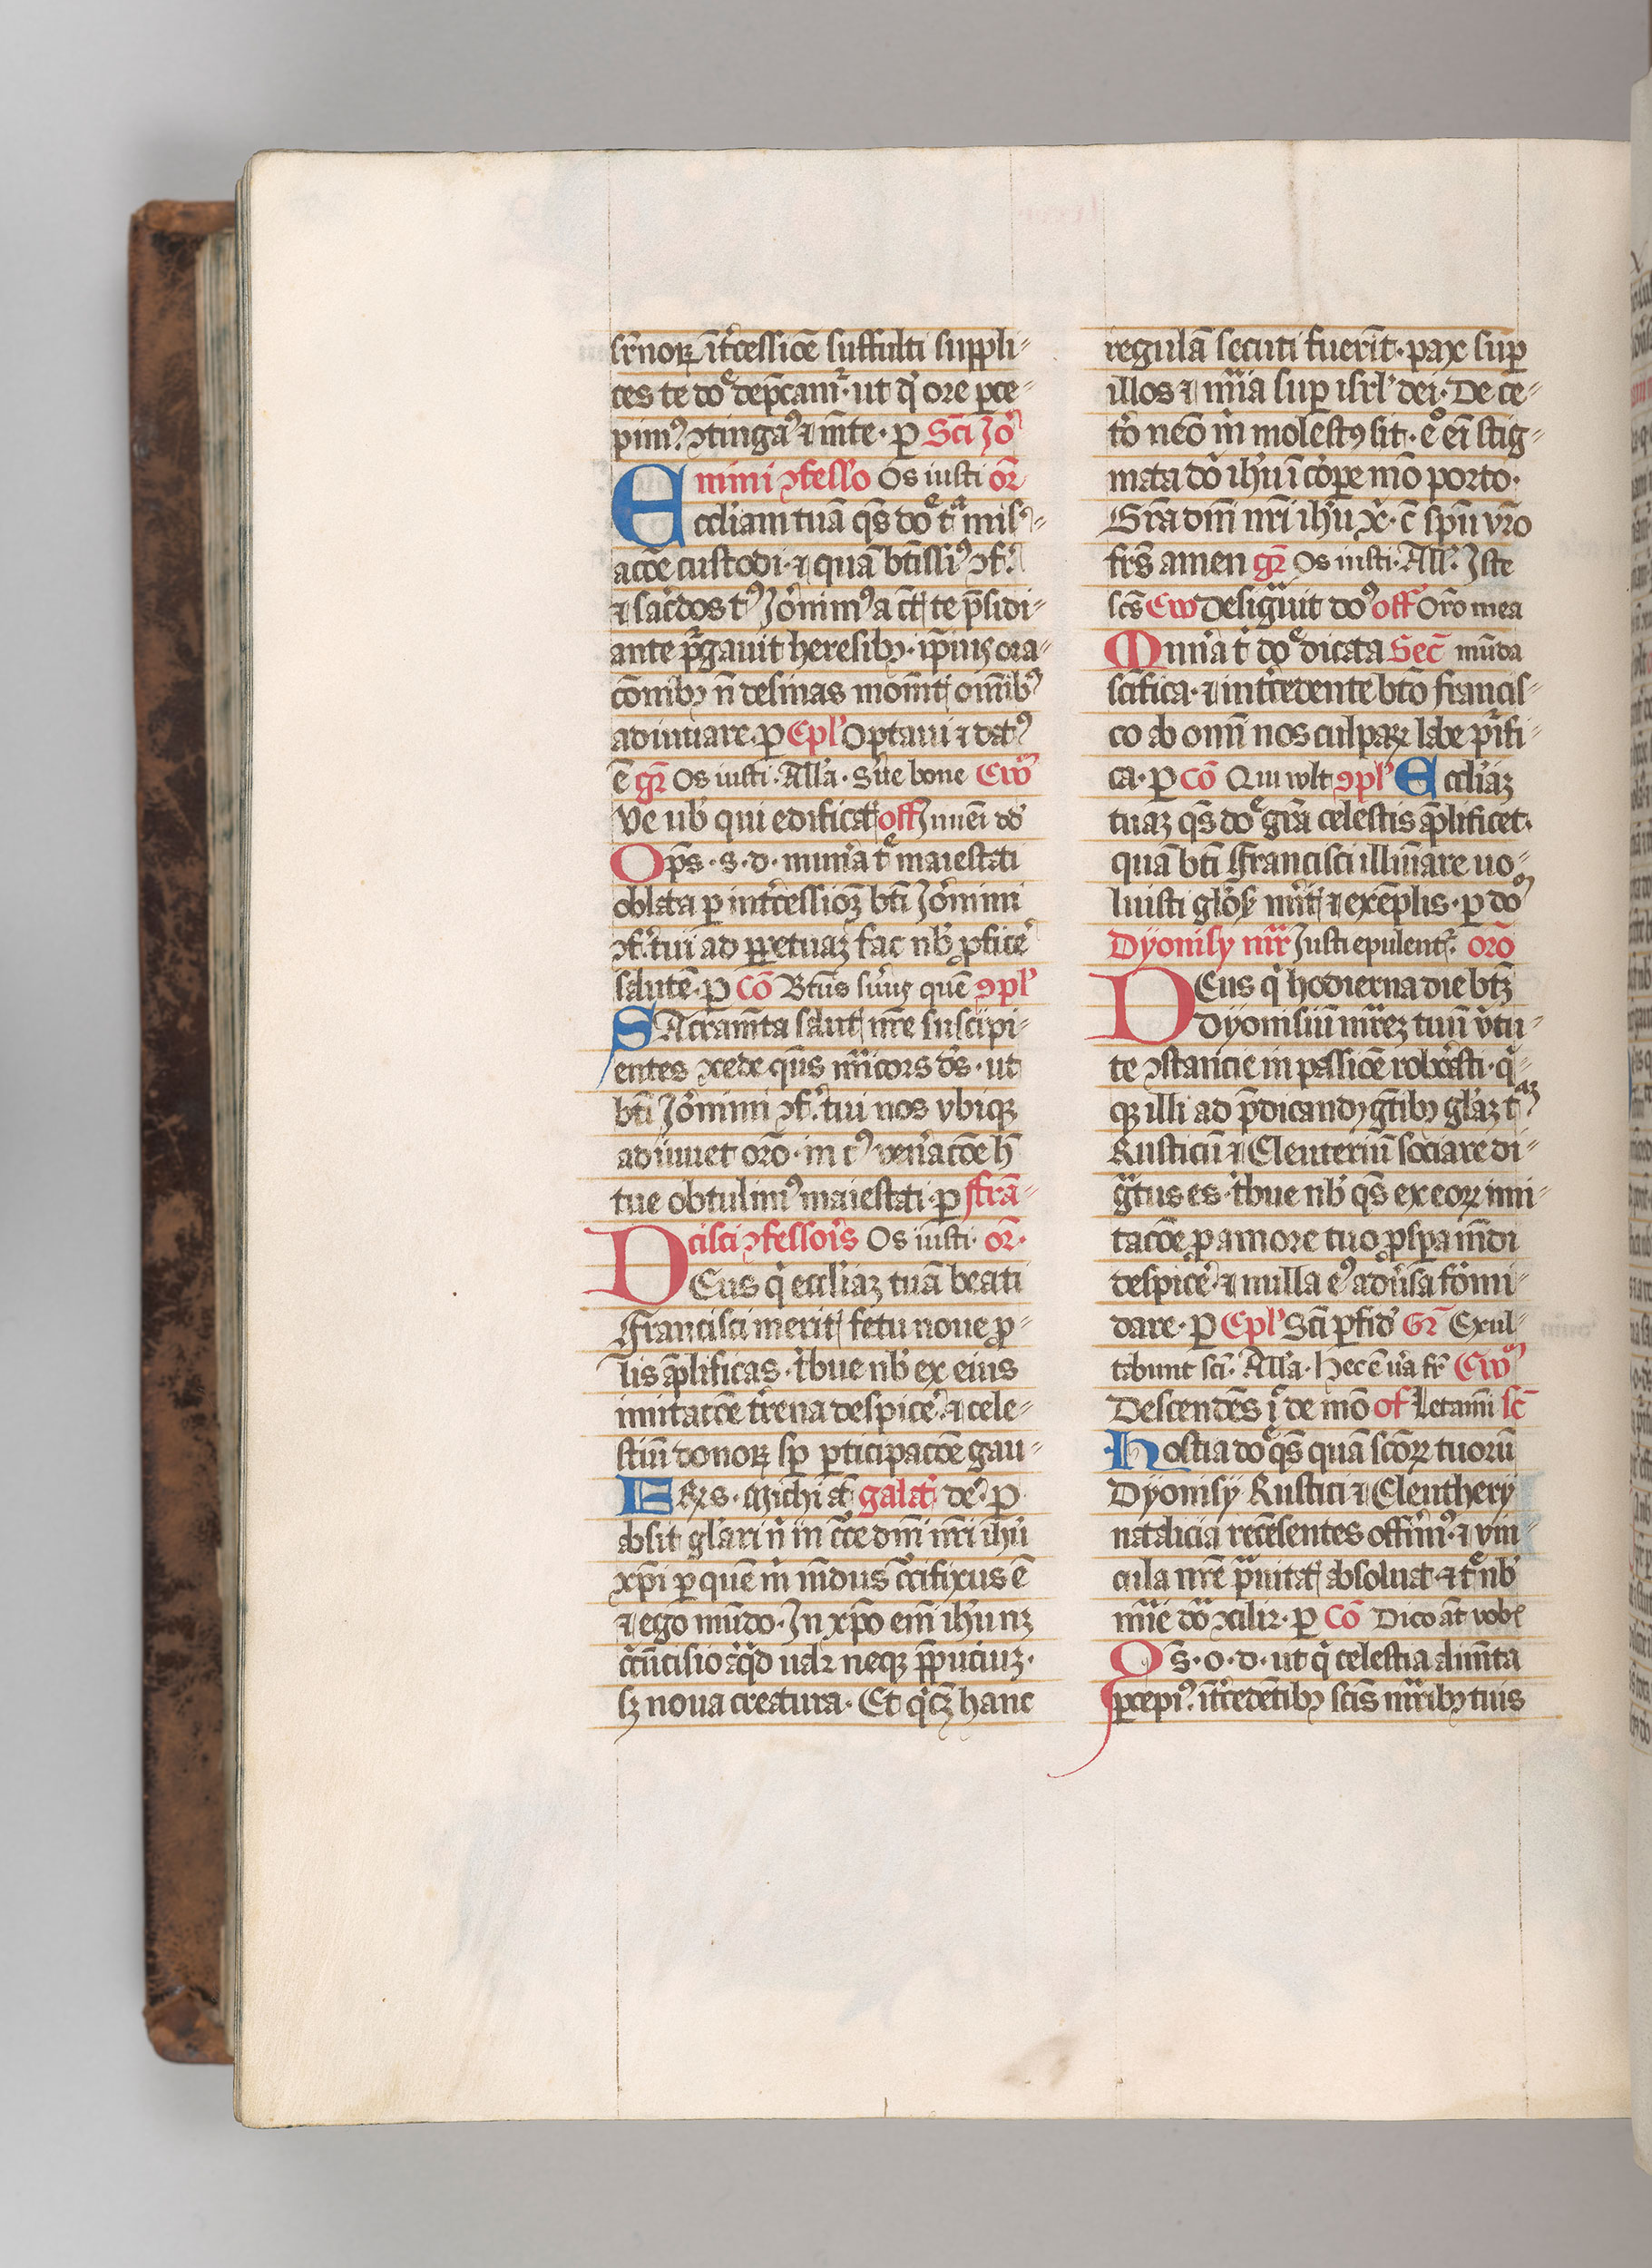 sr̄noꝝ it͛cessiōe suffulti suppli-
ces te doᵉ dep̄camr᷑· ut qͥ ore ꝑce-
pimꝰ ꝯtingaꝰ ⁊ m̄te· ꝑ Sc̄i Jo᷑
nimi ꝯfesso Os iusti or̄
Eccliam tuā qs̄ doᵉ tᵃ mis͛-
acōe custodi· ⁊ quā bt̄issiꝰ ꝯf·
⁊ sac͛dos tꝰ Jo͛nimꝰ a
ante p͛gauit heresibꝫ· ip̄iuꝰ ora-
cōnibꝫ n̄ desinas om̄ibꝰ
adiuuare· ꝑ Epl' Optaui ⁊ datꝰ
ē gr̄ Os iusti· All'a· S͛ue bone Ew̄
Ve ub' qui edificatꝭ off Inueni dd
Op̄s· s· d· mun͛a tᵉ maiestati
oblata ꝑ int͛cessioꝫ bt̄i Jo͛nimi
ꝯf· tui ad ꝑpetuaꝫ fac nb' ꝓfic͛e
salutē· ꝑ Cō Bt̄us s͛uus quē ꝯpl'
SAcram̄ta salutꝭ nr̄e suscipi-
entes ꝯcede qs̄ mi͛cors ds̄· ut
bt̄i Jo͛nimi ꝯf· tui nos vbiqꝫ
adiuuet oro· in cꝰ ven͛acōe h̄
tue obtulimꝰ maiestati· ꝑ ffrā-
cisci ꝯfessor͛s Os iusti· or̄·
DEus qͥ eccl'iaꝫ tuā beati
Francisci meritꝭ fetu noue ꝓ-
lis āplificas· t͛bue nb' ex eius
imitacōe t͛rena despic͛e· ⁊ cele-
stiū donoꝝ sꝑ ꝑticipacōe gau-
Frs· Michi at galatꝭ de· ꝑ
absit gl'ari nͥ in cͬce dn̄i nr̄i ih'u
xp̄i ꝑ quē mͥ mūdus cͬcifixus ē
⁊ ego mūdo· In xp̄o em̄ ih'u nꝫ
cͬcūcisio aͥqͥd ual3 neqꝫ p̄puciuꝫ·
sꝫ noua creatura· Et qͥcꝫ hanc
regulā secuti fuerīt· pax suꝑ
illos ⁊ mi͛a suꝑ isrl' dei· De ce-
t͛o nēo mͥ molestꝰ sit· eᵒ em̄ stig-
mata do᷑ ih'u ī co͛pe mō porto·
Gr̄a dn̄i nr̄i ih'u x· c̄ spū vr̄o
frs̄ amen gr̄ Os iusti· All'· Iste
scs̄ Ew Designauit doꝰ off Oro mea
Mun͛a t͛ doᵉ dicata Sec̄ mūda
sc̄ifica· ⁊ int͛cedente bt̄o francis-
co ab om̄i nos culpaꝝ labe p͛ifi-
ca· ꝑ Cō Qui wlt ꝯpl' Eccl'iaꝫ
tuaꝫ qs̄ doᵉ gr̄a celestis āplificet·
quā bt̄i Francisci illūiare uo-
luisti glo͛s meritꝭ ⁊ exēplis· ꝑ doᵐ
Dyonisy mr̄ Iusti epulent᷑· oro
DEus qͥ hodierna die bt̄ꝫ
Dyonisiū mr̄eꝫ tuū v͛tu-
te ꝯstancie in passiōe robo͛asti· qͥ
qꝫ illi ad p̄dicandꝫ gn̄tibꝫ gl'aꝫ tᵃꝫ
Rusticū ⁊ Eleuteriū sociare di-
gͣtus es· t͛bue nb' qs̄ ex eoꝝ imi-
tacōe ꝑ amore tuo ꝓspa mūdi
despic͛e· ⁊ nulla eꝰ adu͛sa fo͛mi-
dare· ꝑ Epl' Sc̄i ꝑ fid' Gr̄ Exul-
tabunt sc̄i· All'a· Hec ē u͛a fr̄ Ew̄
Descendēs iᷤ de mō of Letamī sc̄
Hostia doᵉ qs̄ quā sc̄oꝝ tuorū
Dyonisy Rustici ⁊ Eleuthery
natalicia recēsentes off͛imꝰ· ⁊ vin-
cula nr̄e pͣuitatꝭ absoluat ⁊ tᵉ nb'
mi͛e doͣ ꝯcilie3· ꝑ Cō Dico at vobꝭ
Qs̄· o· d· ut qͥ celestia alim̄ta
ꝑcepiꝰ it͛cedētibꝫ scīs mr̄ibꝫ tuis